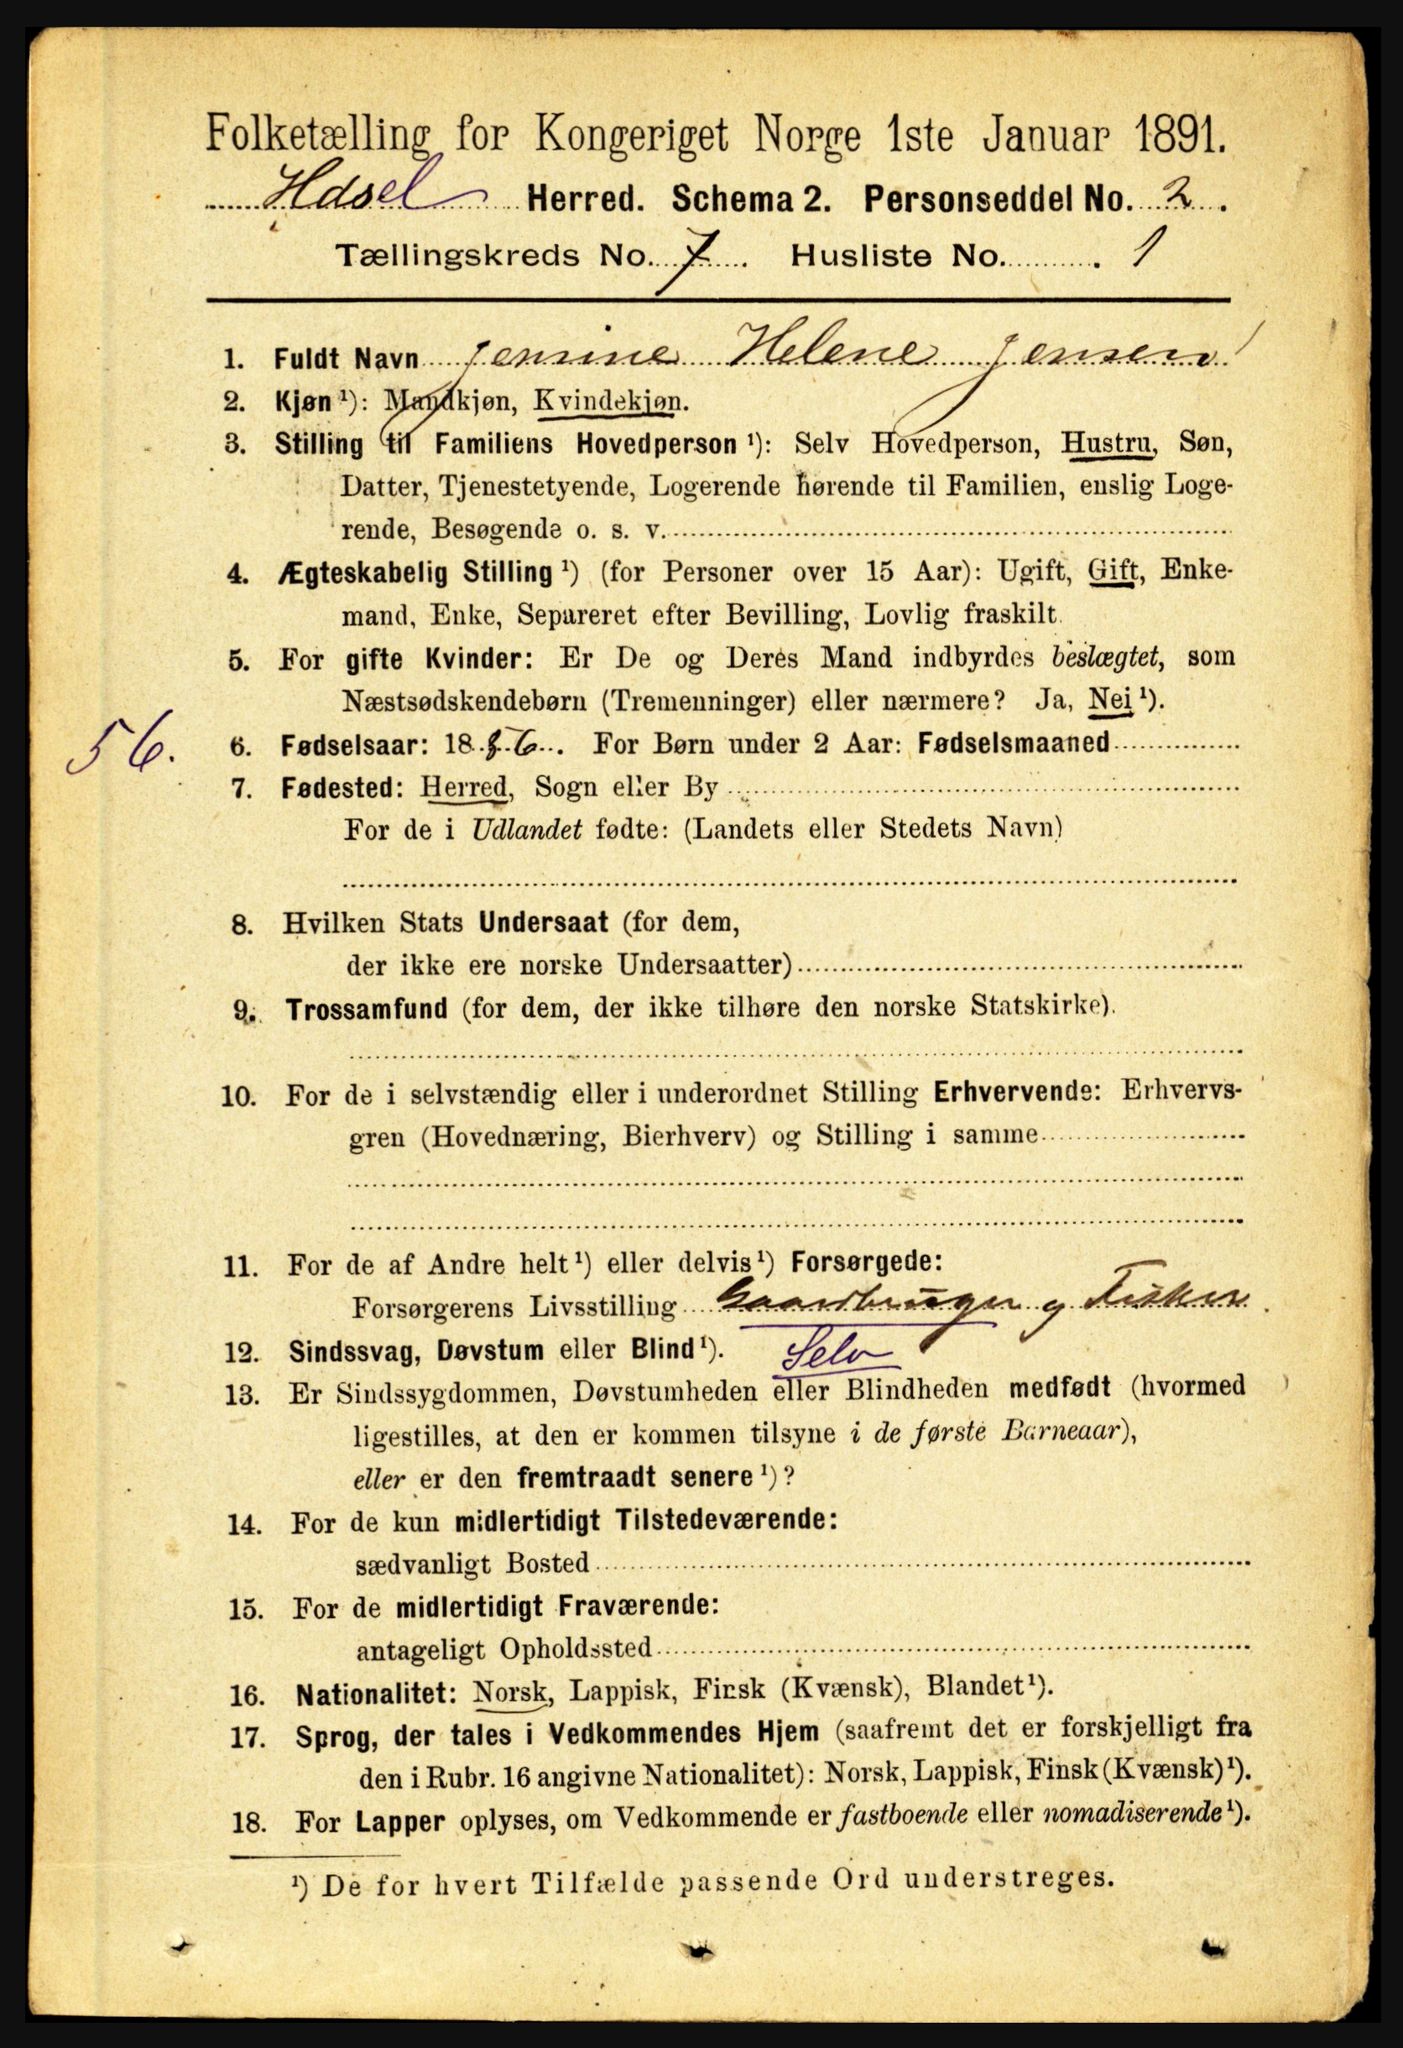 Folketælling for Kongeriget Norge 1ste Januar 1891.
Hasel Herred. Schema 2. Personseddel No. 2.
Tællingskreds No. 7. Husliste No. 1
1. Fuldt Navn Jensine Helene Jensen
2. Kjøn ¹): Mandkjøn, Kvindekjøn.
3. Stilling til Familiens Hovedperson ¹): Selv Hovedperson, Hustru, Søn,
Datter, Tjenestetyende, Logerende hørende til Familien, enslig Loge-
rende, Besøgende o. s. v.
4. Ægteskabelig Stilling ¹) (for Personer over 15 Aar): Ugift, Gift, Enke-
mand, Enke, Separeret efter Bevilling, Lovlig fraskilt.
5. For gifte Kvinder: Er De og Deres Mand indbyrdes beslægtet, som
Næstsødskendebørn (Tremenninger) eller nærmere? Ja, Nei ¹).
56.
6. Fødselsaar: 1856. For Børn under 2 Aar: Fødselsmaaned
7. Fødested: Herred, Sogn eller By
For de i Udlandet fødte: (Landets eller Stedets Navn)
8. Hvilken Stats Undersaat (for dem,
der ikke ere norske Undersaatter)
9. Trossamfund (for dem, der ikke tilhøre den norske Statskirke).
10. For de i selvstændig eller i underordnet Stilling Erhvervende: Erhvervs-
gren (Hovednæring, Bierhverv) og Stilling i samme
11. For de af Andre helt ¹) eller delvis ¹) Forsørgede:
Forsørgerens Livsstilling Gaardbruger og Fisker
12. Sindssvag, Døvstum eller Blind ¹). Selv
13. Er Sindssygdommen, Døvstumheden eller Blindheden medfødt (hvormed
ligestilles, at den er kommen tilsyne i de første Barneaar),
eller er den fremtraadt senere ¹)?
14. For de kun midlertidigt Tilstedeværende:
sædvanligt Bosted
15. For de midlertidigt Fraværende:
antageligt Opholdssted
16. Nationalitet: Norsk, Lappisk, Finsk (Kvænsk), Blandet ¹).
17. Sprog, der tales i Vedkommendes Hjem (saafremt det er forskjelligt fra
den i Rubr. 16 angivne Nationalitet): Norsk, Lappisk, Finsk (Kvænsk) ¹).
18. For Lapper oplyses, om Vedkommende er fastboende eller nomadiserende ¹).
¹) De for hvert Tilfælde passende Ord understreges.